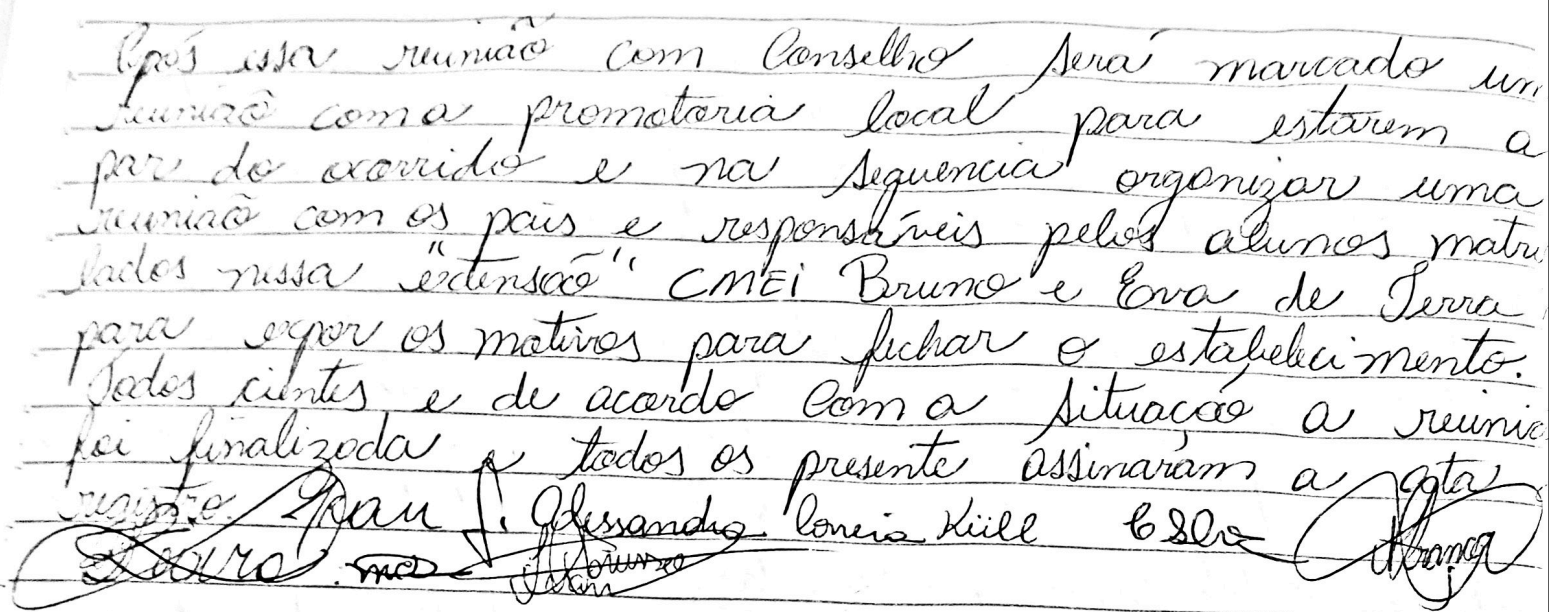 Após essa reunião com Conselho será marcado um
reunião com a promotoria local para estarem a
par do ocorrido e na sequencia organizar uma
reunião com os pais e responsáveis pelos alunos matri
lados nessa "extensão" CMEi Bruno e Eva de Terra
para expor os motivos para fechar o estabelecimento.
Todos cientes e de acordo com a situação a reuniã
foi finalizada e todos os presente assinaram a ata
registro. Alessandra Küll